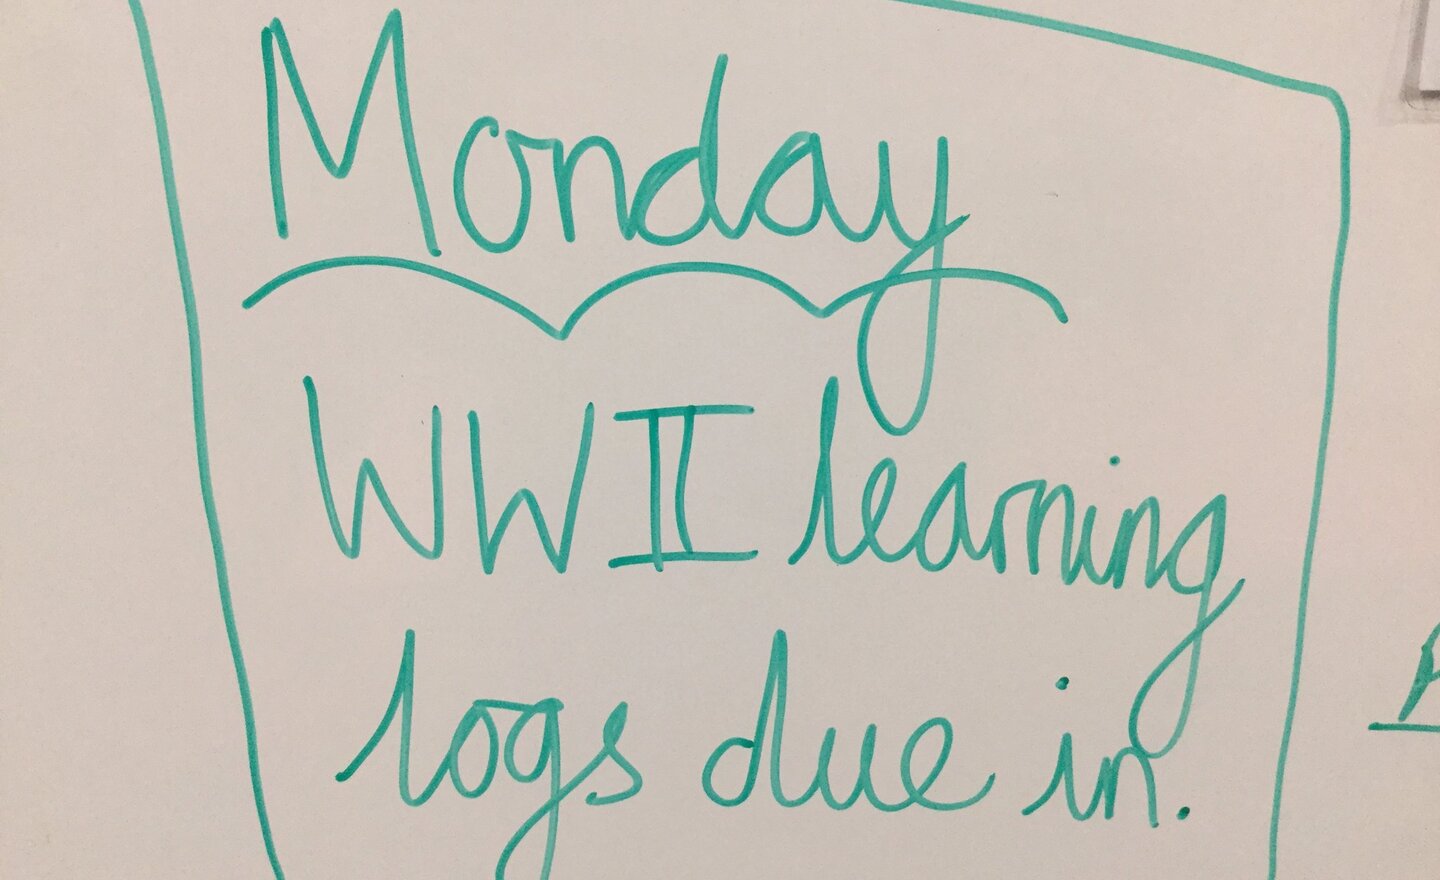 Monday
WWII learning
logs due in.